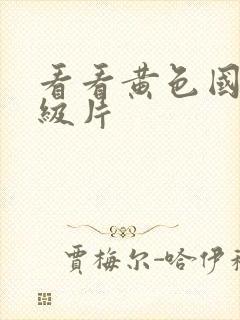 看看黄色国
级片
贾梅尔-哈伊